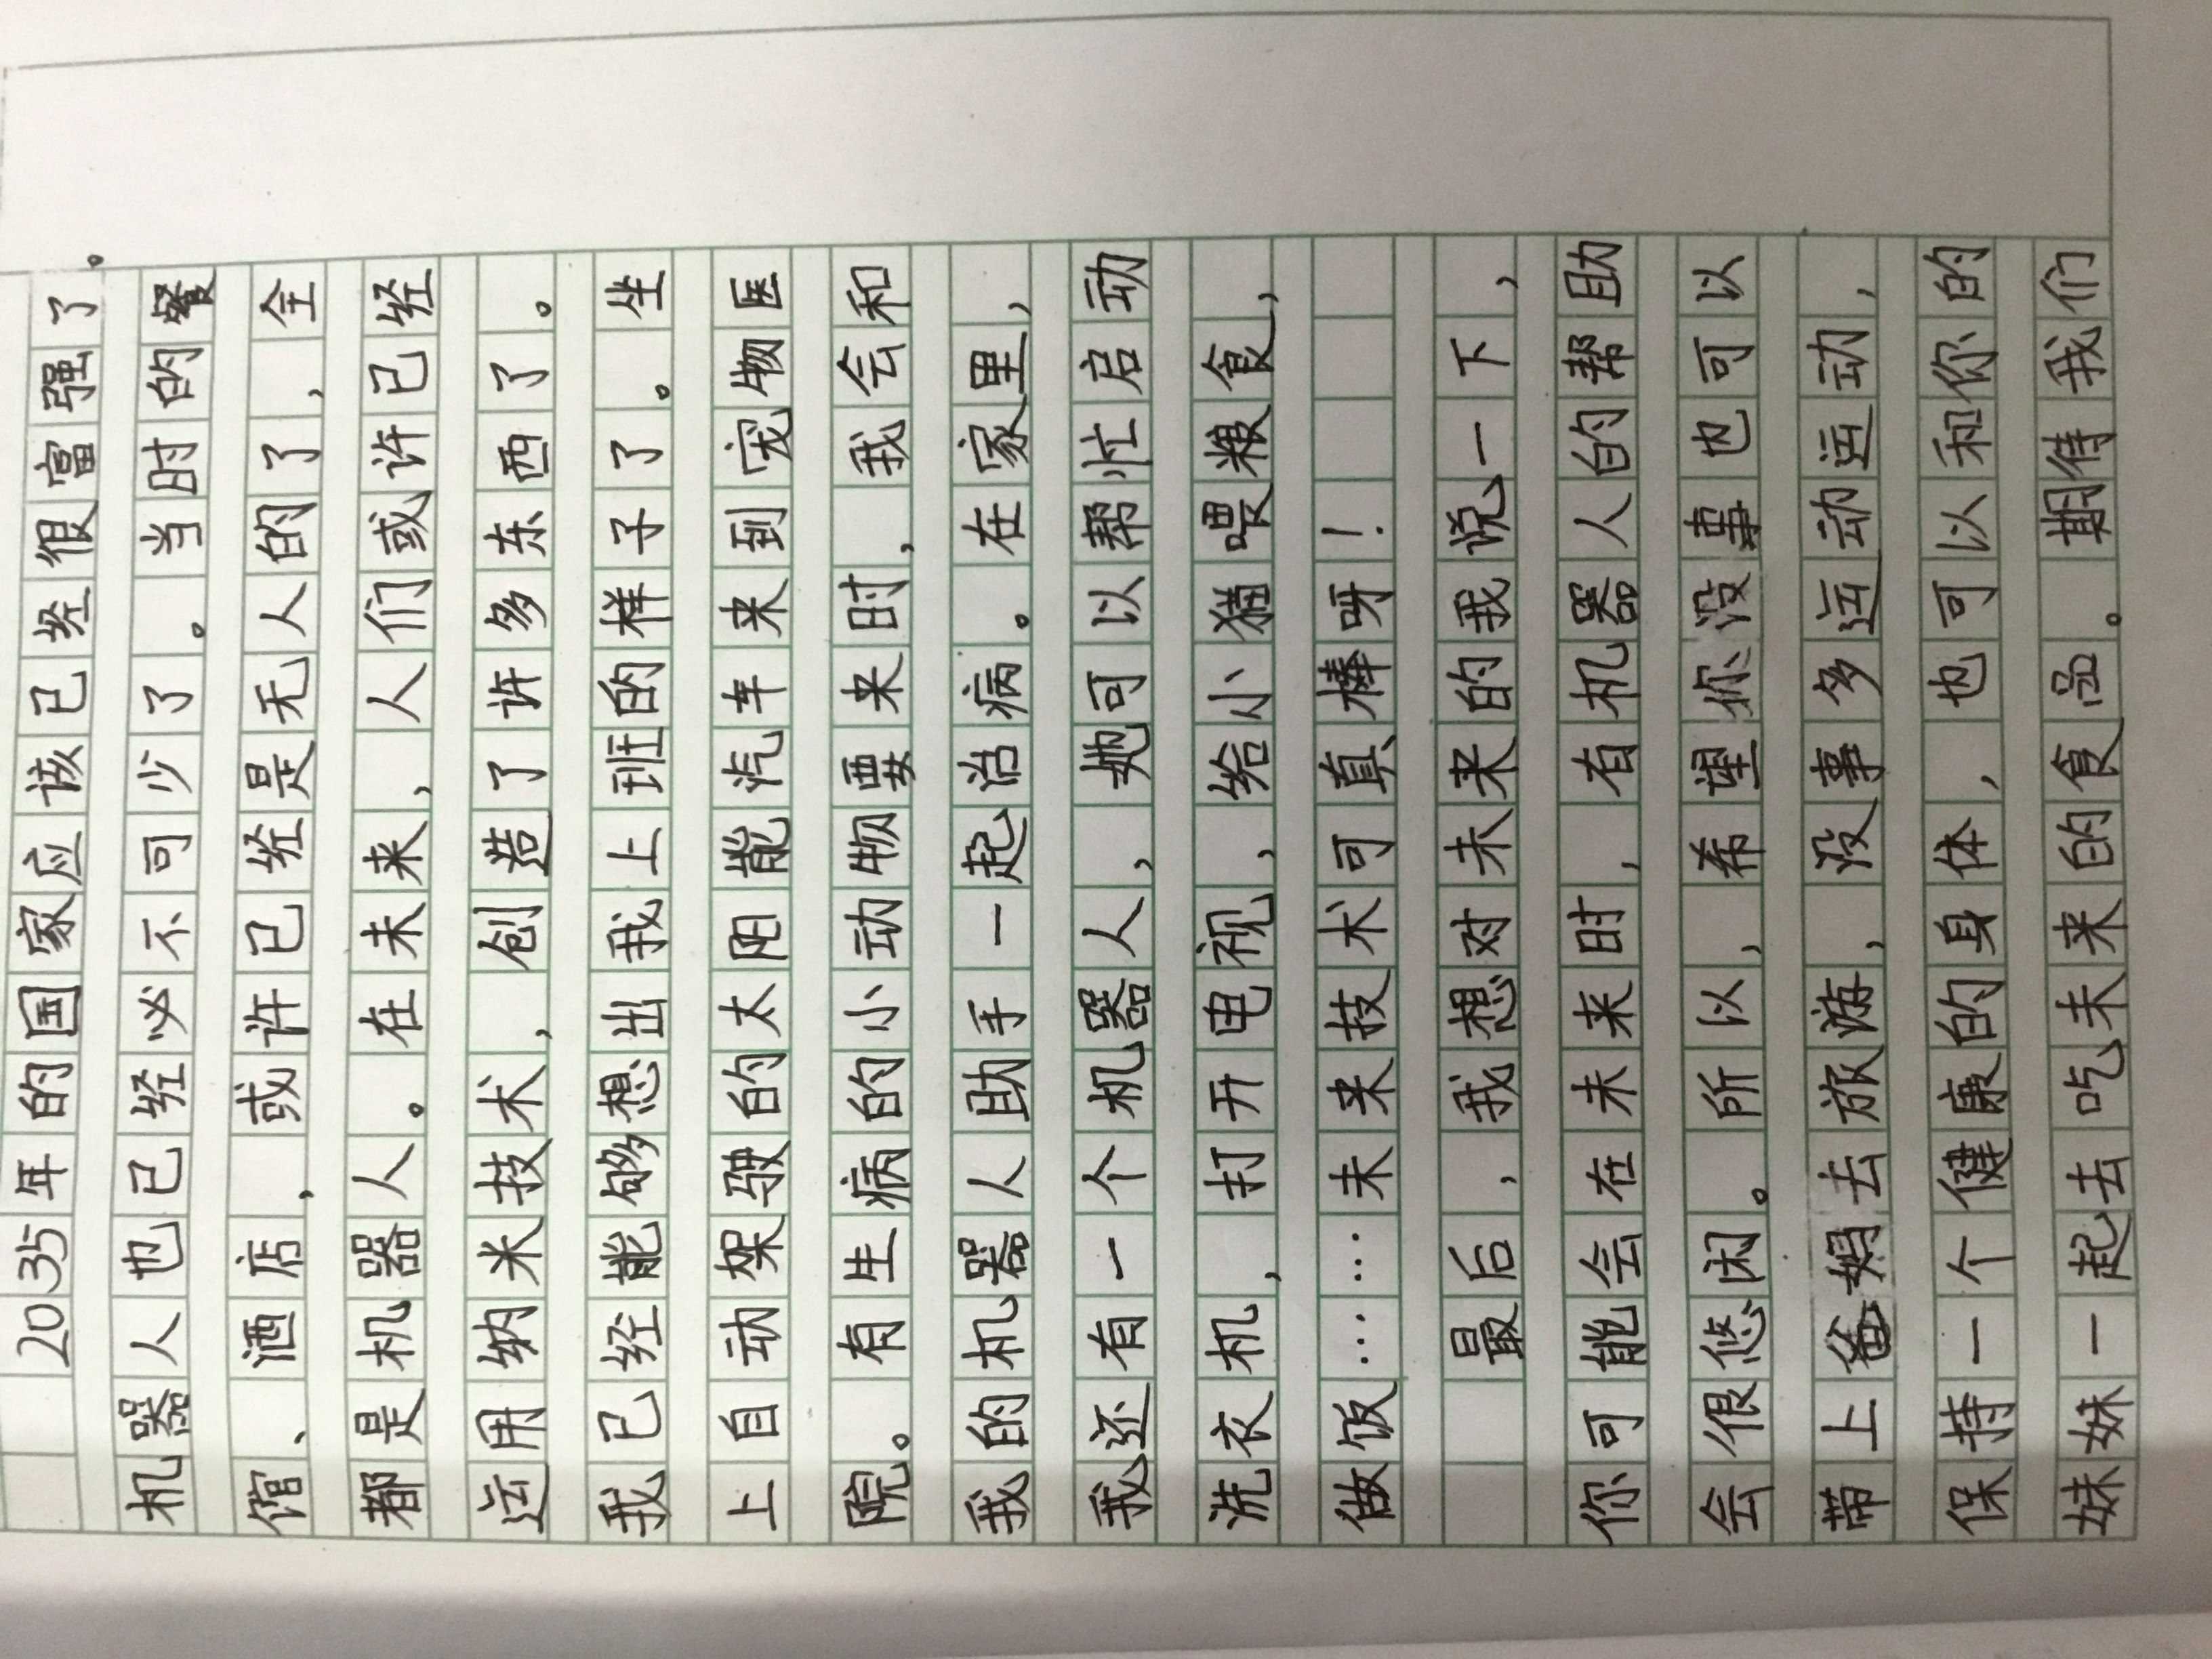 2035年的国家应该已经很富强了。
机器人也已经必不可少了。当时的餐
馆、酒店，或许已经是无人的了，全
都是机器人。在未来，人们或许已经
运用纳米技术，创造了许多东西了。
我已经能够想出我上班的样子了。坐
上自动架驶的太阳能汽车来到宠物医
院。有生病的小动物要来时，我会和
我的机器人助手一起治病。在家里，
我还有一个机器人，她可以帮忙启动
洗衣机，打开电视，给小猫喂粮食，
做饭……未来技术可真棒呀！
最后，我想对未来的我说一下，
你可能会在未来时，有机器人的帮助
会很悠闲。所以，希望你没事也可以
带上爸妈去旅游，没事多运动运动，
保持一个健康的身体，也可以和你的
妹妹一起去吃未来的食品。期待我们